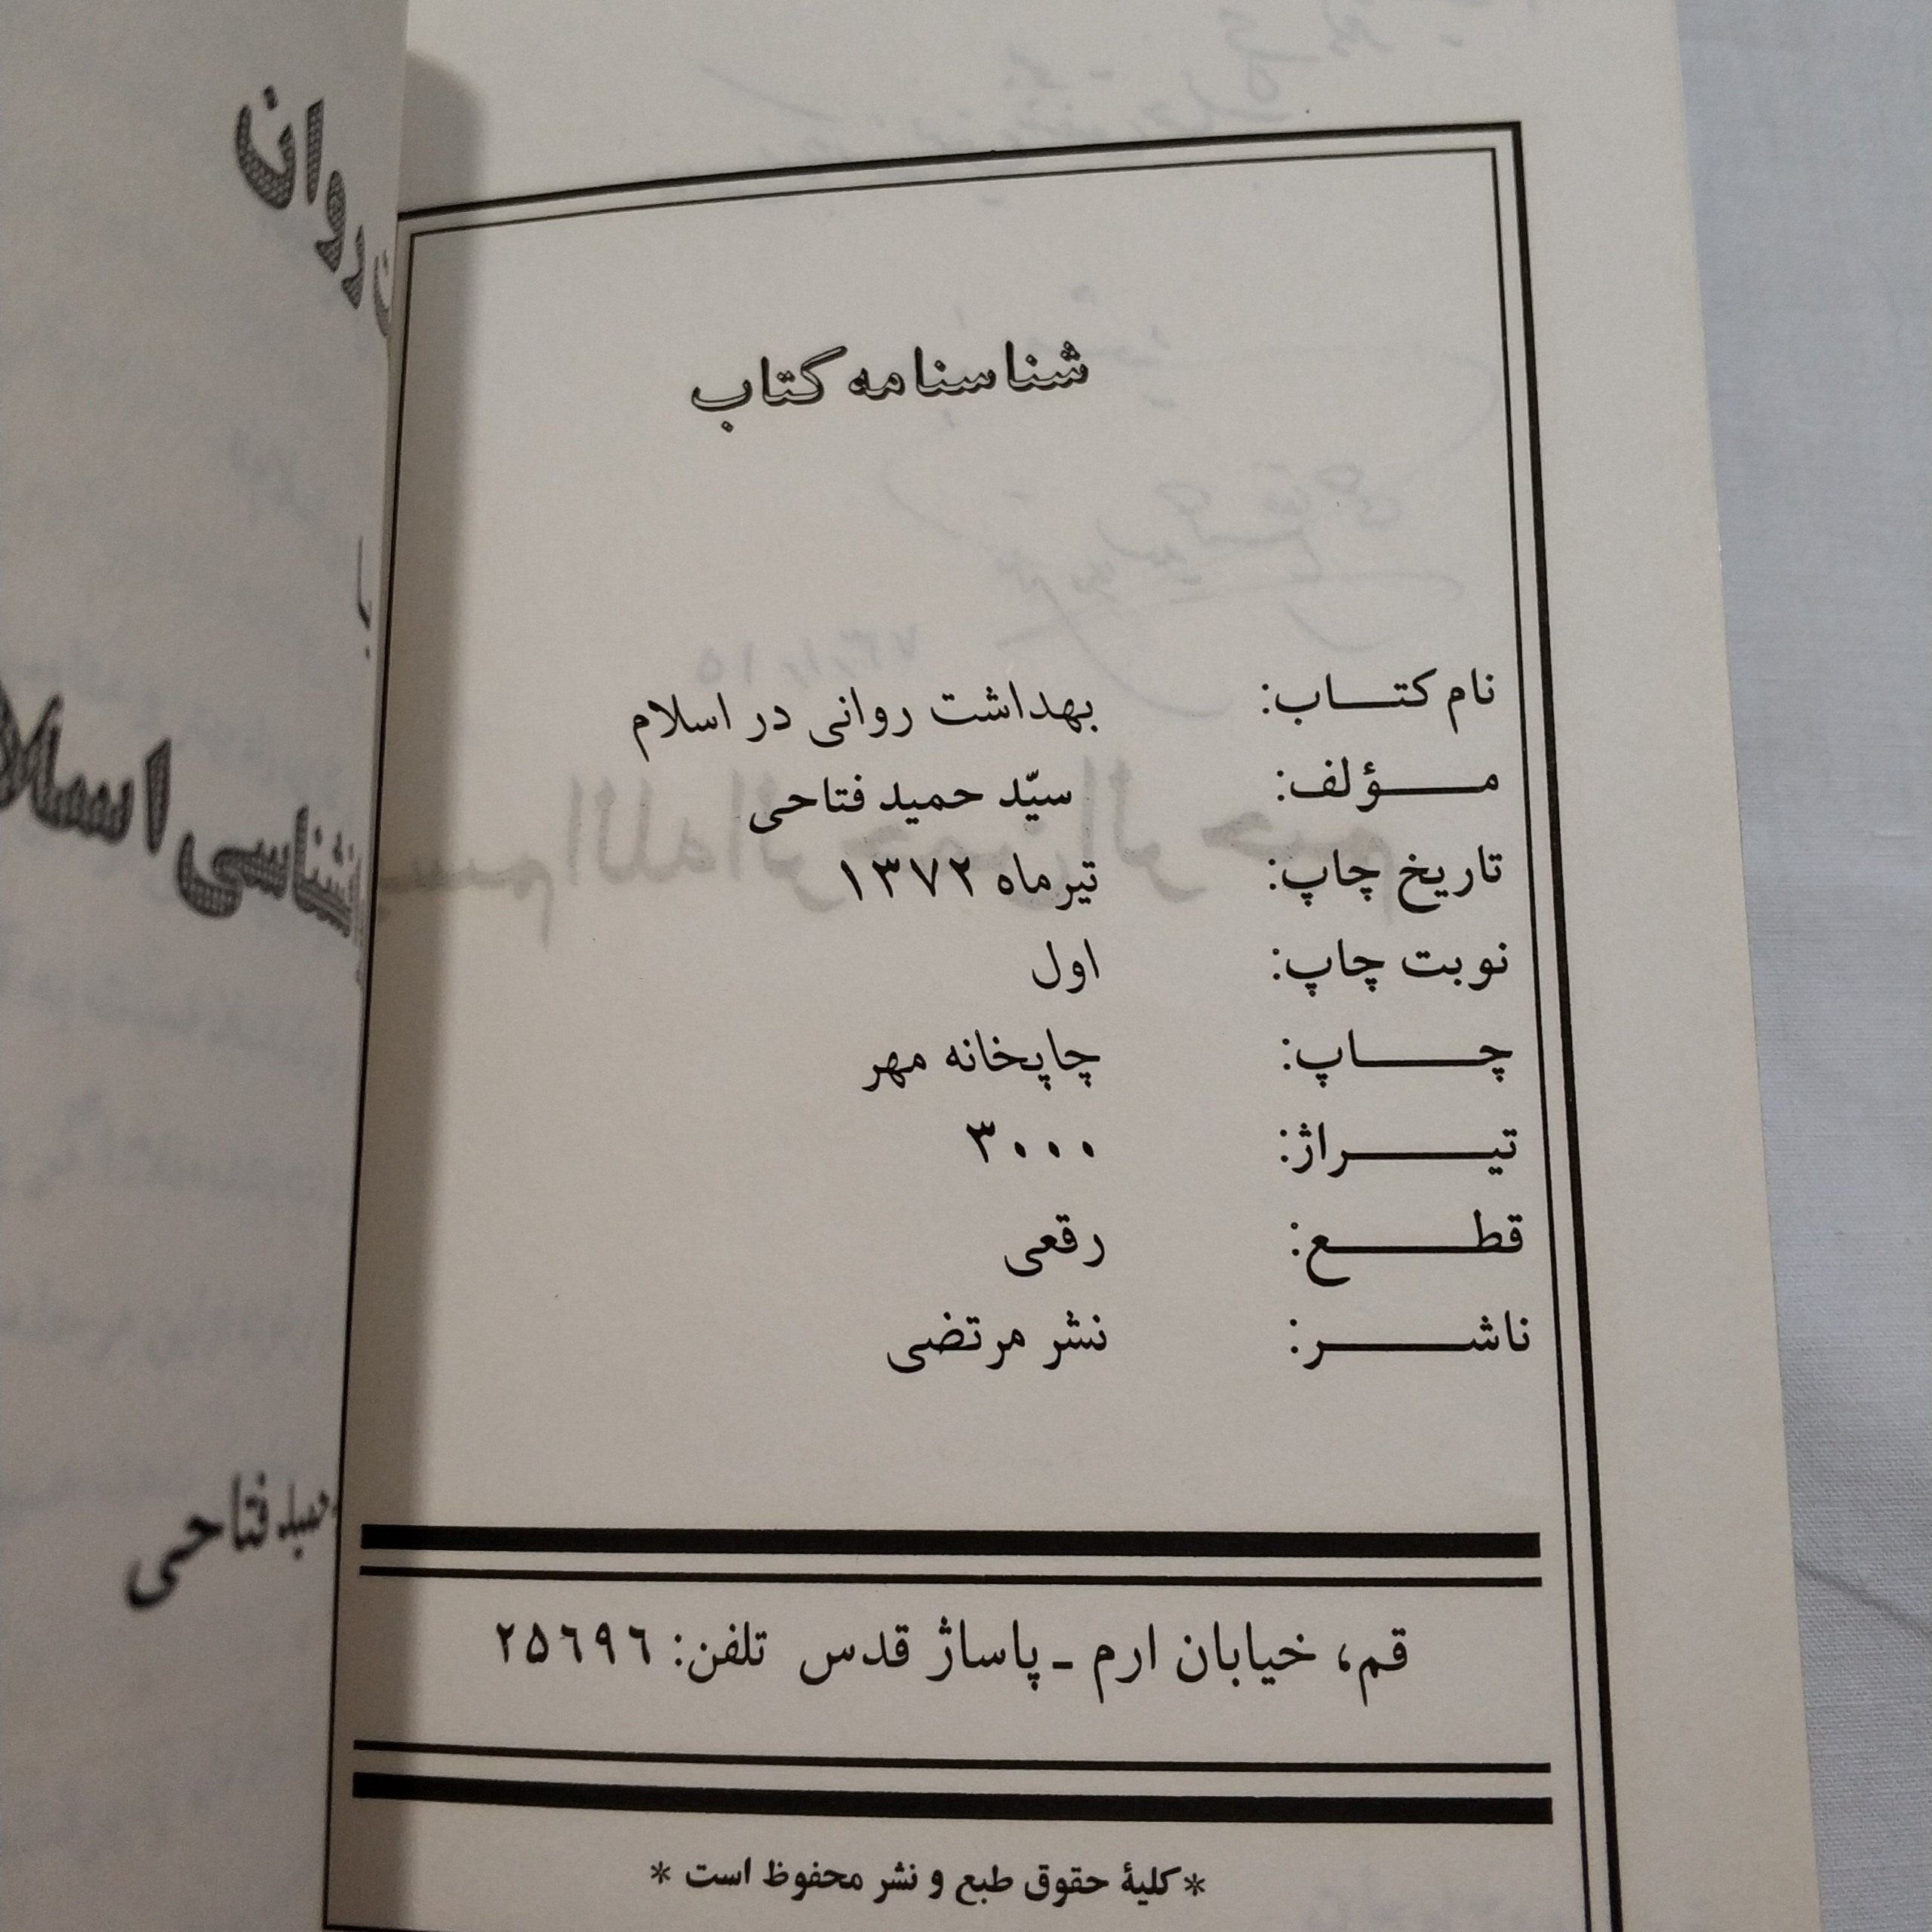 شناسنامه کتاب
نام کتاب: بهداشت روانی در اسلام
مؤلف: سیّد حمید فتاحی
تاریخ چاپ: تیرماه ۱۳۷۲
نوبت چاپ: اول
چاپ: چاپخانه مهر
تیراژ: ۳۰۰۰
قطع: رقعی
ناشر: نشر مرتضی
قم، خیابان ارم - پاساژ قدس تلفن: ۲۵٦۹٦
* کلیهٔ حقوق طبع و نشر محفوظ است *
روان
فتاحی